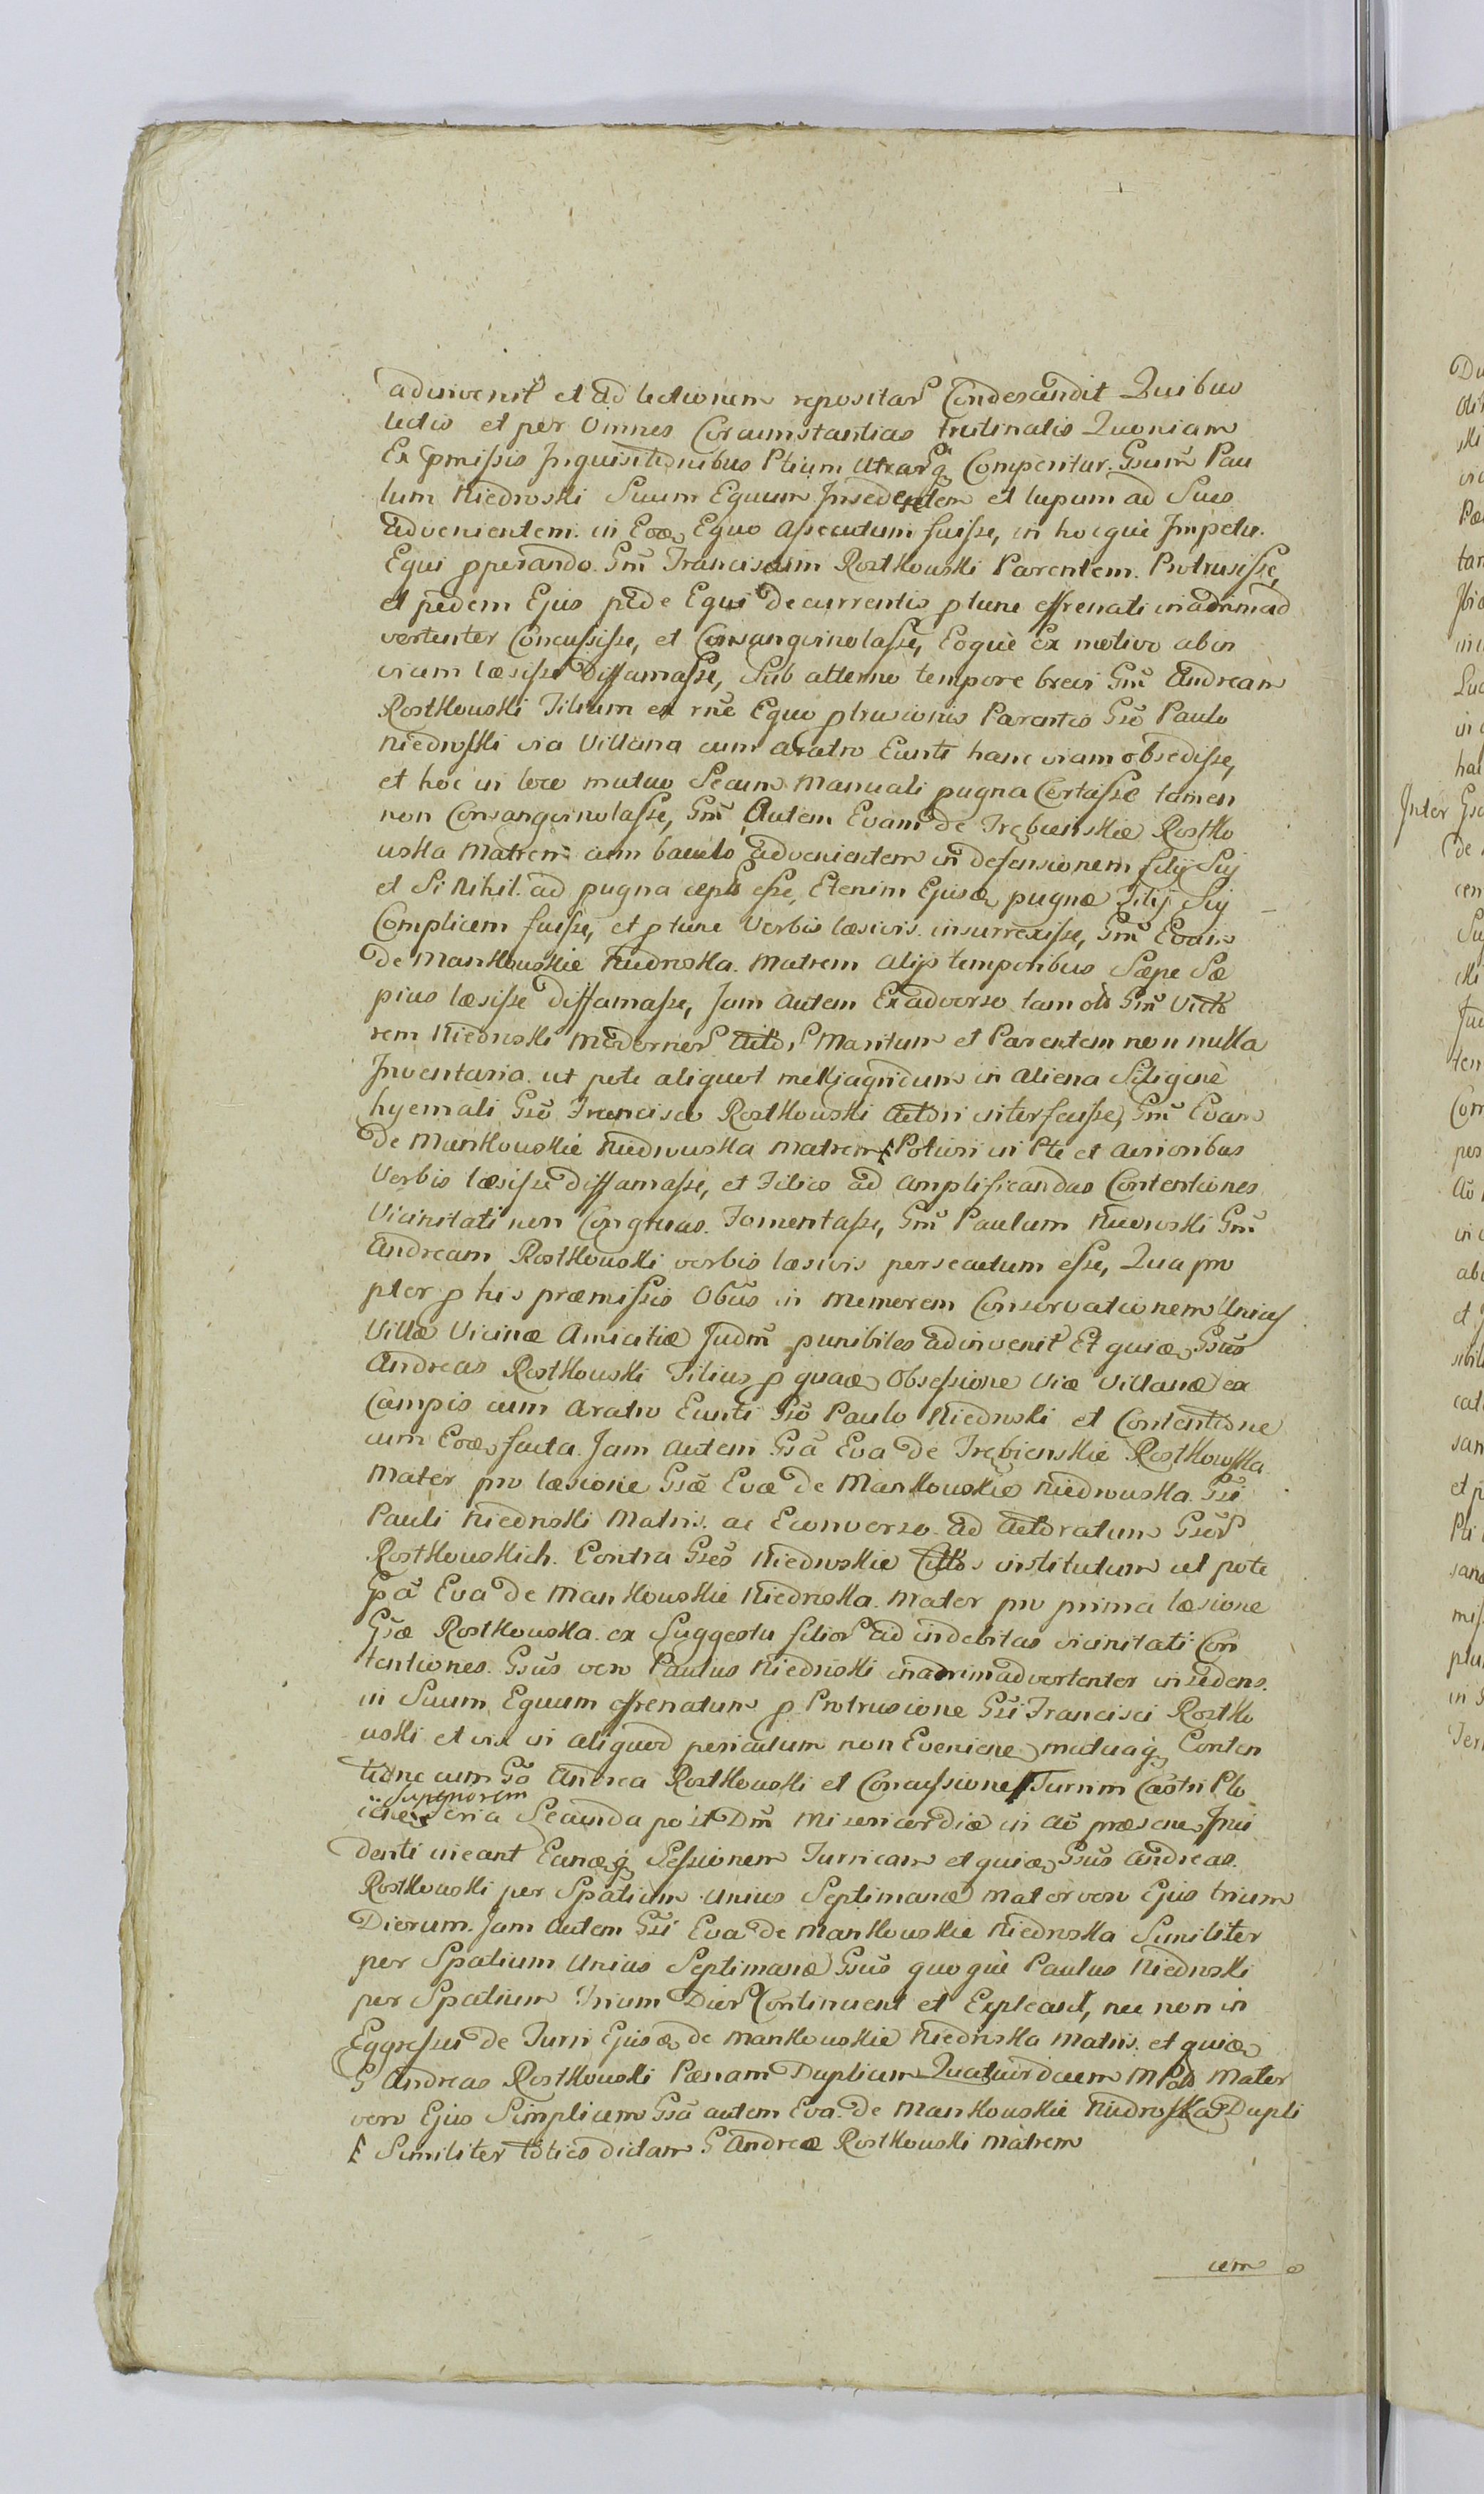 adinvenit et ad lectionem repositar Condescendit Quibus
lectis et per Omnes Circumstantias trutinatis Quoniam
Ex pmissis Inquisitionibus Ptium Utrarq Comperitur. Gsum Pau
lum Niedroski Suum Equum Insedentem et lupum ad Sues
advenientem in Eoe Equo Assecutum fuisse, in hocque Impetu.
Equi pperando. Gm Franciscum Rostkouski Parentem. Protrusisse,
et pedem Ejus pede Equi decurrentis ptunc effrenati inadnimad
vertenter Concussisse, et Consangvinolasse, Eoque Ex motivo abin
vicem læsisse Diffamasse, Sub alterno tempore brevi Gm Andream
Rostkouski Filium ex rne Equo ptrusionis Parentis Gso Paulo
Niedroski via Villana cum aratro Eunti hanc viam obsedisse,
et hoc in loco mutuo Secum Manuali pugna Certasse tamen
non Consangvinolasse, Gm Autem Evam de Trębienskie Rostko
uska Matrem cum baculo advenientem in defensionem filij Sui
et Si Nihil. ad pugna cepis esse, Etenim Ejusde pugnæ Filij Sui
Complicem fuisse, et ptunc Verbis læsivis. insurrexisse, Gm Evam
de Mankouskie Niedroska. Matrem Alijs temporibus Sæpe Sæ
pius læsisse Diffamasse, Jam Autem Ex adverso tam ols Gm Victo
rem Niedroski Modernor Actor Maritum et Parentem non nulla
Inventaria. ut pote aliquot in aliena Siligine
hyemali Gso Francisco Rostkouski Actori fuisse, Gm Evam
de Mankouskie Niedrouska Matrem Potiori in Pte et acrioribus
Verbis læsisse diffamasse, et Filios ad Amplificandas Contentiones
Vicinitati non Congruas. Fomentasse, Gm Paulum Niedroski Gm
Andream Rostkouski verbis læsivis persecutum esse, Qua pro
pter p his præmissis Obus in Memorem Conservationem Unius
Villæ Vicinæ Amicitiæ Judm punibiles adinvenit Et quide Gsus
Andreas Rostkouski Filius p quade Obsessione Viæ Villanæ ex
Campis cum Aratro Eunti Gso Paulo Niedroski et Contentione
cum Eode facta. Jam Autem Gsa Eva de Trębienskie Rostkouska
Mater pro læsione Gsæ Evæ de Mankouskie Niedrouska. Gsi
Pauli Niedroski Matris. ac Econverso ad Actoratum Gsor
Rostkouskich. Contra Gsos Niedroskie Cittos institutum ut pote
Gsa Eva de Mankouskie Niedroska. Mater pro prima læsione
Gsæ Rostkouska. ex Suggestu filior ad indebitas vicinitati Con
tentiones. Gsus vero Paulus Niedroski inadnimadvertenter insidens.
in Suum Equum effrenatum p Protrusione Gsi Francisci Rostko
uski et vix in aliquod periculum non Evenienre mutuaq Conten
tione cum Gso Andrea Rostkouski et Concussione Turrim Castri Plo
Superiorem
Feria Secunda post Dm Misericordiæ in Ao præsene Inci
denti incant Eandeq Sessionem Turricam et quide Gsus Andreas.
Rostkouski per Spatium Unius Septimanæ Mater vero Ejus trium
Dierum. Jam autem Gsi Eva de Mankouskie Niedroska Similiter
per Spatium Unius Septimanæ Gsus quoque Paulus Niedroski
per Spatium Trium Dier Continuent et Expleant, nec non in
Eggressu de Turri Ejusde de Mankouskie Niedroska Matris. et quide
G Andreas Rostkouski Pænam Duplicem Quatuordecem MPols Mater
vero Ejus Simplicem Gsa autem Eva de Mankouskie Niedroska Dupli
Similiter toties dictam G Andreæ Rostkouski Matrem
cem